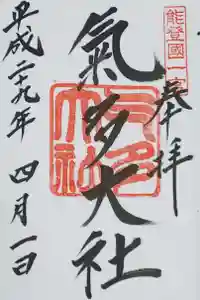 能登國一宮
奉拝
氣多大社
平成二十九年 四月一日